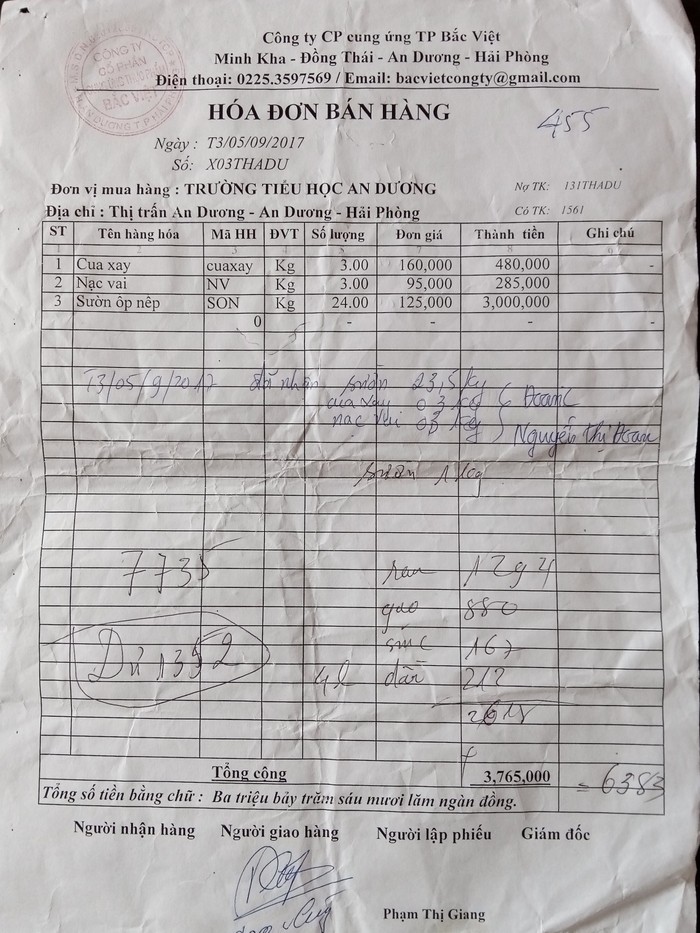 Công ty CP cung ứng TP Bắc Việt
Minh Kha - Đồng Thái - An Dương - Hải Phòng
Điện thoại: 0225.3597569 / Email: bacvietcongty@gmail.com
CÔNG TY
CỔ PHẦN
BẮC VIỆT
HÓA ĐƠN BÁN HÀNG
455
Ngày : T3/05/09/2017
Số: X03THADU
Đơn vị mua hàng : TRƯỜNG TIỂU HỌC AN DƯƠNG Nợ TK: 131THADU
Địa chỉ : Thị trấn An Dương - An Dương - Hải Phòng Có TK: 1561
ST Tên hàng hóa Mã HH ĐVT Số lượng Đơn giá Thành tiền Ghi chú
1 Cua xay cuaxay Kg 3.00 160,000 480,000 -
2 Nạc vai NV Kg 3.00 95,000 285,000
3 Sườn ôp nêp SON Kg 24.00 125,000 3,000,000
0 - - - -
T3/05/9/2017 đã nhận sườn 23,5 kg
cua xay 03 kg Đoan
nạc vai 03 kg Nguyễn Thị Đoan
sườn 1 kg
7735
rau 1294
gạo 880
Dư 1352
167
4l dầu 212
Tổng cộng 3,765,000 = 6383
Tổng số tiền bằng chữ : Ba triệu bảy trăm sáu mươi lăm ngàn đồng.
Người nhận hàng Người giao hàng Người lập phiếu Giám đốc
Phạm Thị Giang